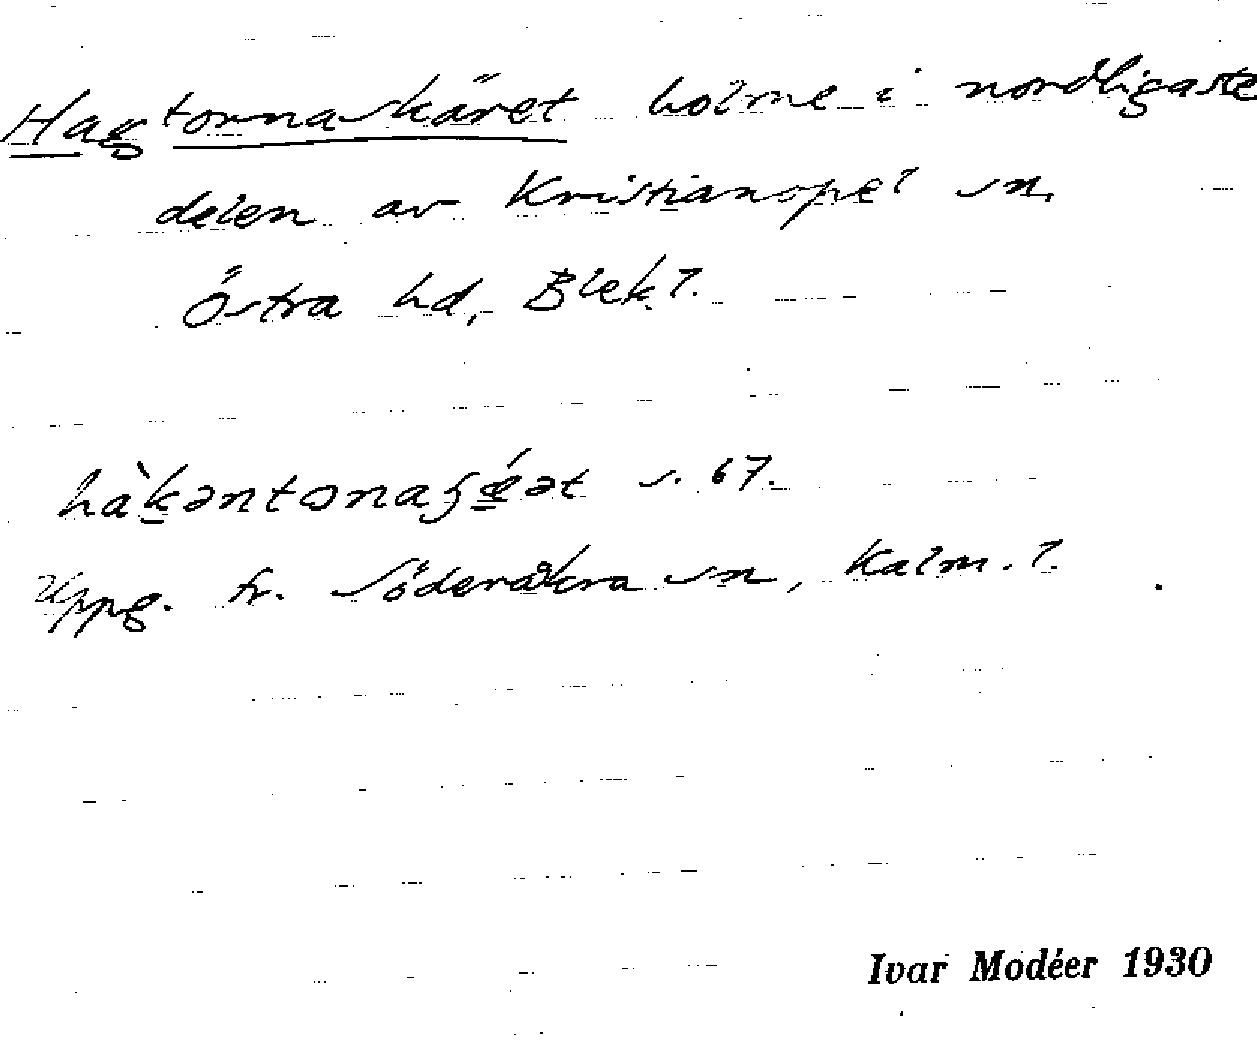 Hagtornaskäret holme i nordligaste
delen av Kristianopel sn,
Östra hd, Blek. l.
hàkəntonaʂéət s. 67.
Uppg. fr. Söderåkra sn, Kalm. l.
Ivar Modéer 1930